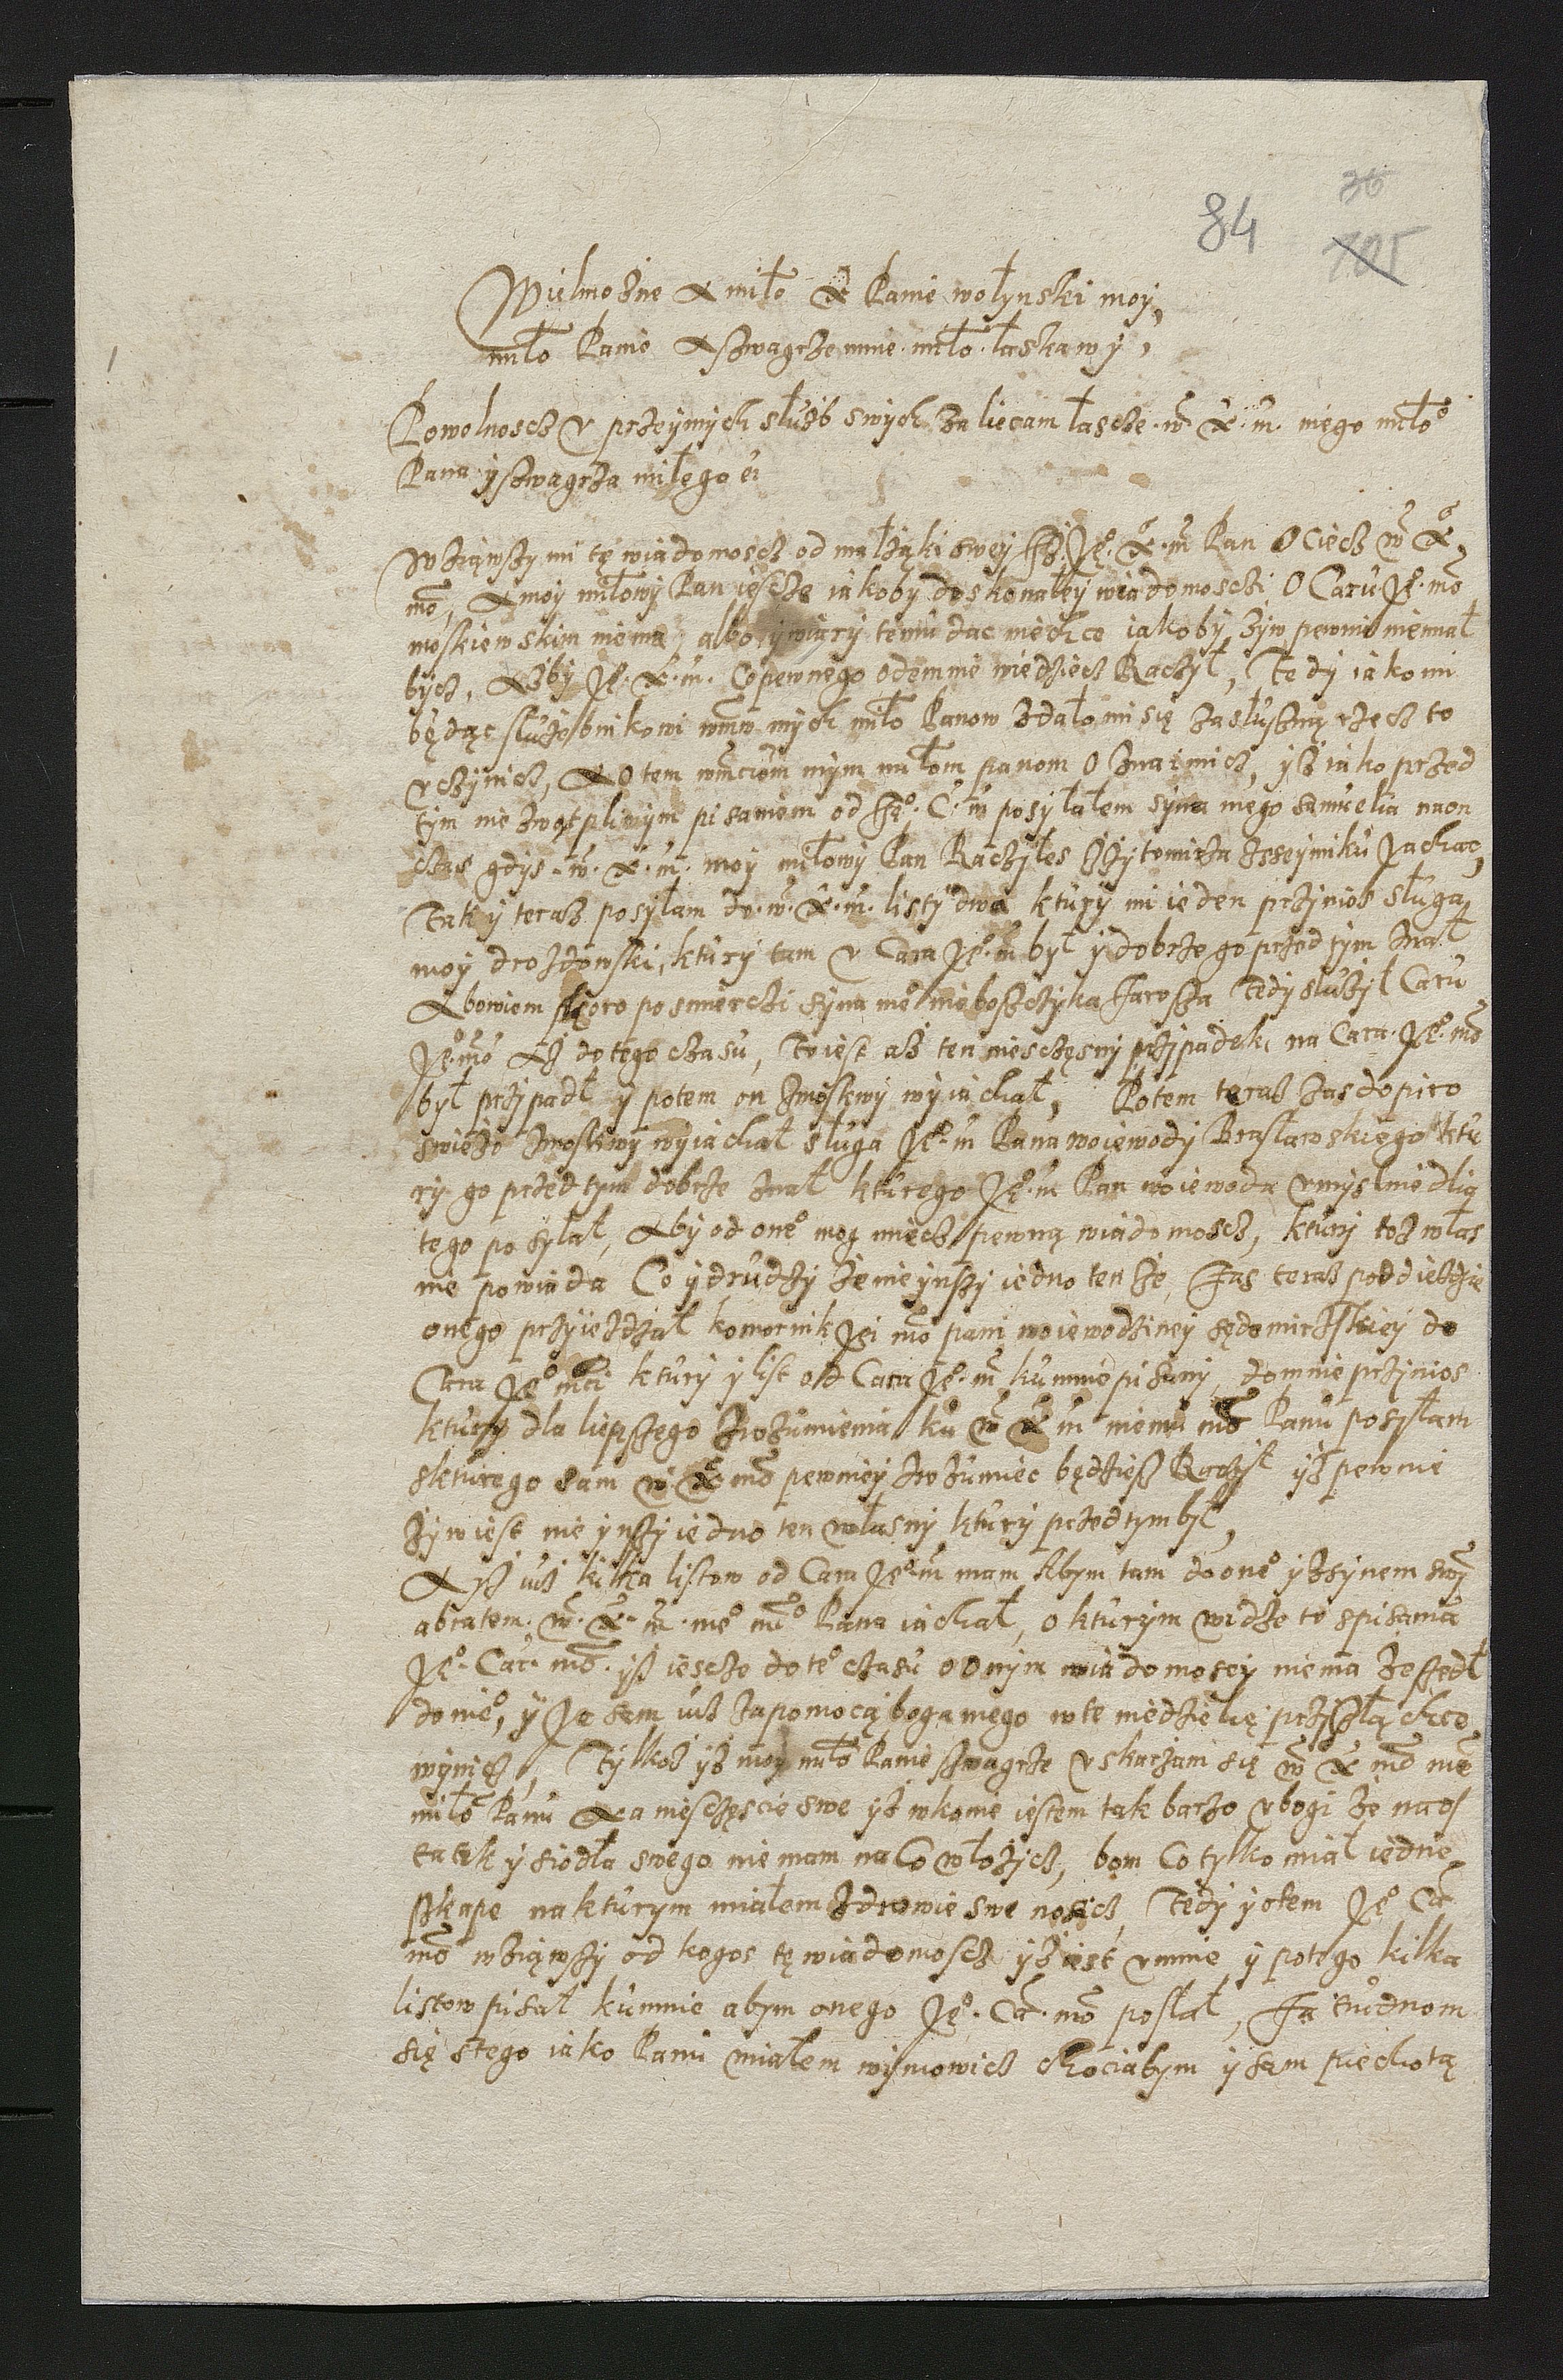 84
36
105
Wielmożne X miło X Panie wołynski moy,
miło Panie X szwagrze mnie miło łaskawy,
Powolnoscz y przeymych służb swych zaliecam łascze w X m mego miło
Pana y szwagrza miłego ei
Wziąwszy mi tę wiadomoscz od małżąki swej Jż Je X m Pan Ociecz w X
mo, X moy miłowy Pan iescze iakoby doskonałey wiadomosczi O Caru Je mo
moskiewskim niema, albo y wiary temu dac niechce iakoby żyw pewnie niemiał
bycz, Ażby Je X m Copewnego odemnie wiedziecz Raczył, Tedy iako mi
będąc służebnikowi wmw mych miło Panow zdało mi się zasłuszną rzecz to
vczynicz, X O tem wmciom mym miłom panom Oznaimicz, yż iako przed
tym nie zwątpliwym pisaniem od Je C m posyłałem syna mego samuelia naon
czas gdys w X m moy miłowy Pan Raczyłes zżytomirza zsseymiku Jachac,
Tak y teraz posyłam do w X m listy dwa ktury mi ieden przyniosł sługa
moy drozdowski, ktury tam v Cara Je m był y dobrze go przed tym znał
Abowiem skoro po smierczi syna me nieboszczyka Jarosza Tedy służył Caru
Je mo Aż do tego czasu, To iest aż ten niesczęsny przypadek na Cara Je mo
był przypadł y potem on zmoskwy wyiachał, Potem teraz zas dopiro
swieżo zmoskwy wyiachał sługa Je m Pana woiewody Brasławskiego ktu
ry go przed tym dobrze znał kturego Je m Pan woiewoda vmyslnie dlia
tego posyłał, Aby od one mog miecz pewną wiadomoscz, ktury też właś
nie powiada Co y drudzy że nie ynszy iedno ten że, Jas teraz poddiezdzie
onego przyieżdżał komornik Jei mo pani woiewodziney sędomirzskiey do
Cara Je mci ktury y list od Cara Je m kumnie pisany, domnie przynios
ktury dla liepszego zrozumienia ku w X m memu mo Panu posyłam
skturego sam w X mo pewniey zrozumiec będziesz Raczył yż pewnie
żyw iest nie ynszy iedno ten własny ktury przed tym był,
A yż iuż kilka listow od Cara Je m mam Abym tam do one y zsynem swy
abratem w X m me mo Pana iachał, o kturym widze to spisania
Je Car mo yż iescze do te czasu o onym wiadomoscy niema że szedł
do nie, y Ja sam iuż zapomocą boga mego wte niedzielię przyszłą chce
wynicz, Tylkoż yż moy miło Panie szwagrze vskarżam się w X mo me
miło Panu X a niesczęscie swe yż w konie iestem tak barzo vbogi że na os
tatek y siodła swego nie mam na Co włożycz, bom Co tylko miał iedne
szkape na kturym miałem zdrowie swe nosicz, Tedy y otem Je Ca
mo wziąwszy od kogos tę wiadomoscz yż iest vmnie y potego kilka
listow pisał kumnie abym onego Je Ca mo posłał, Ja trudnom
się stego iako Panu miałem wymowicz chociabym y sam piechotą